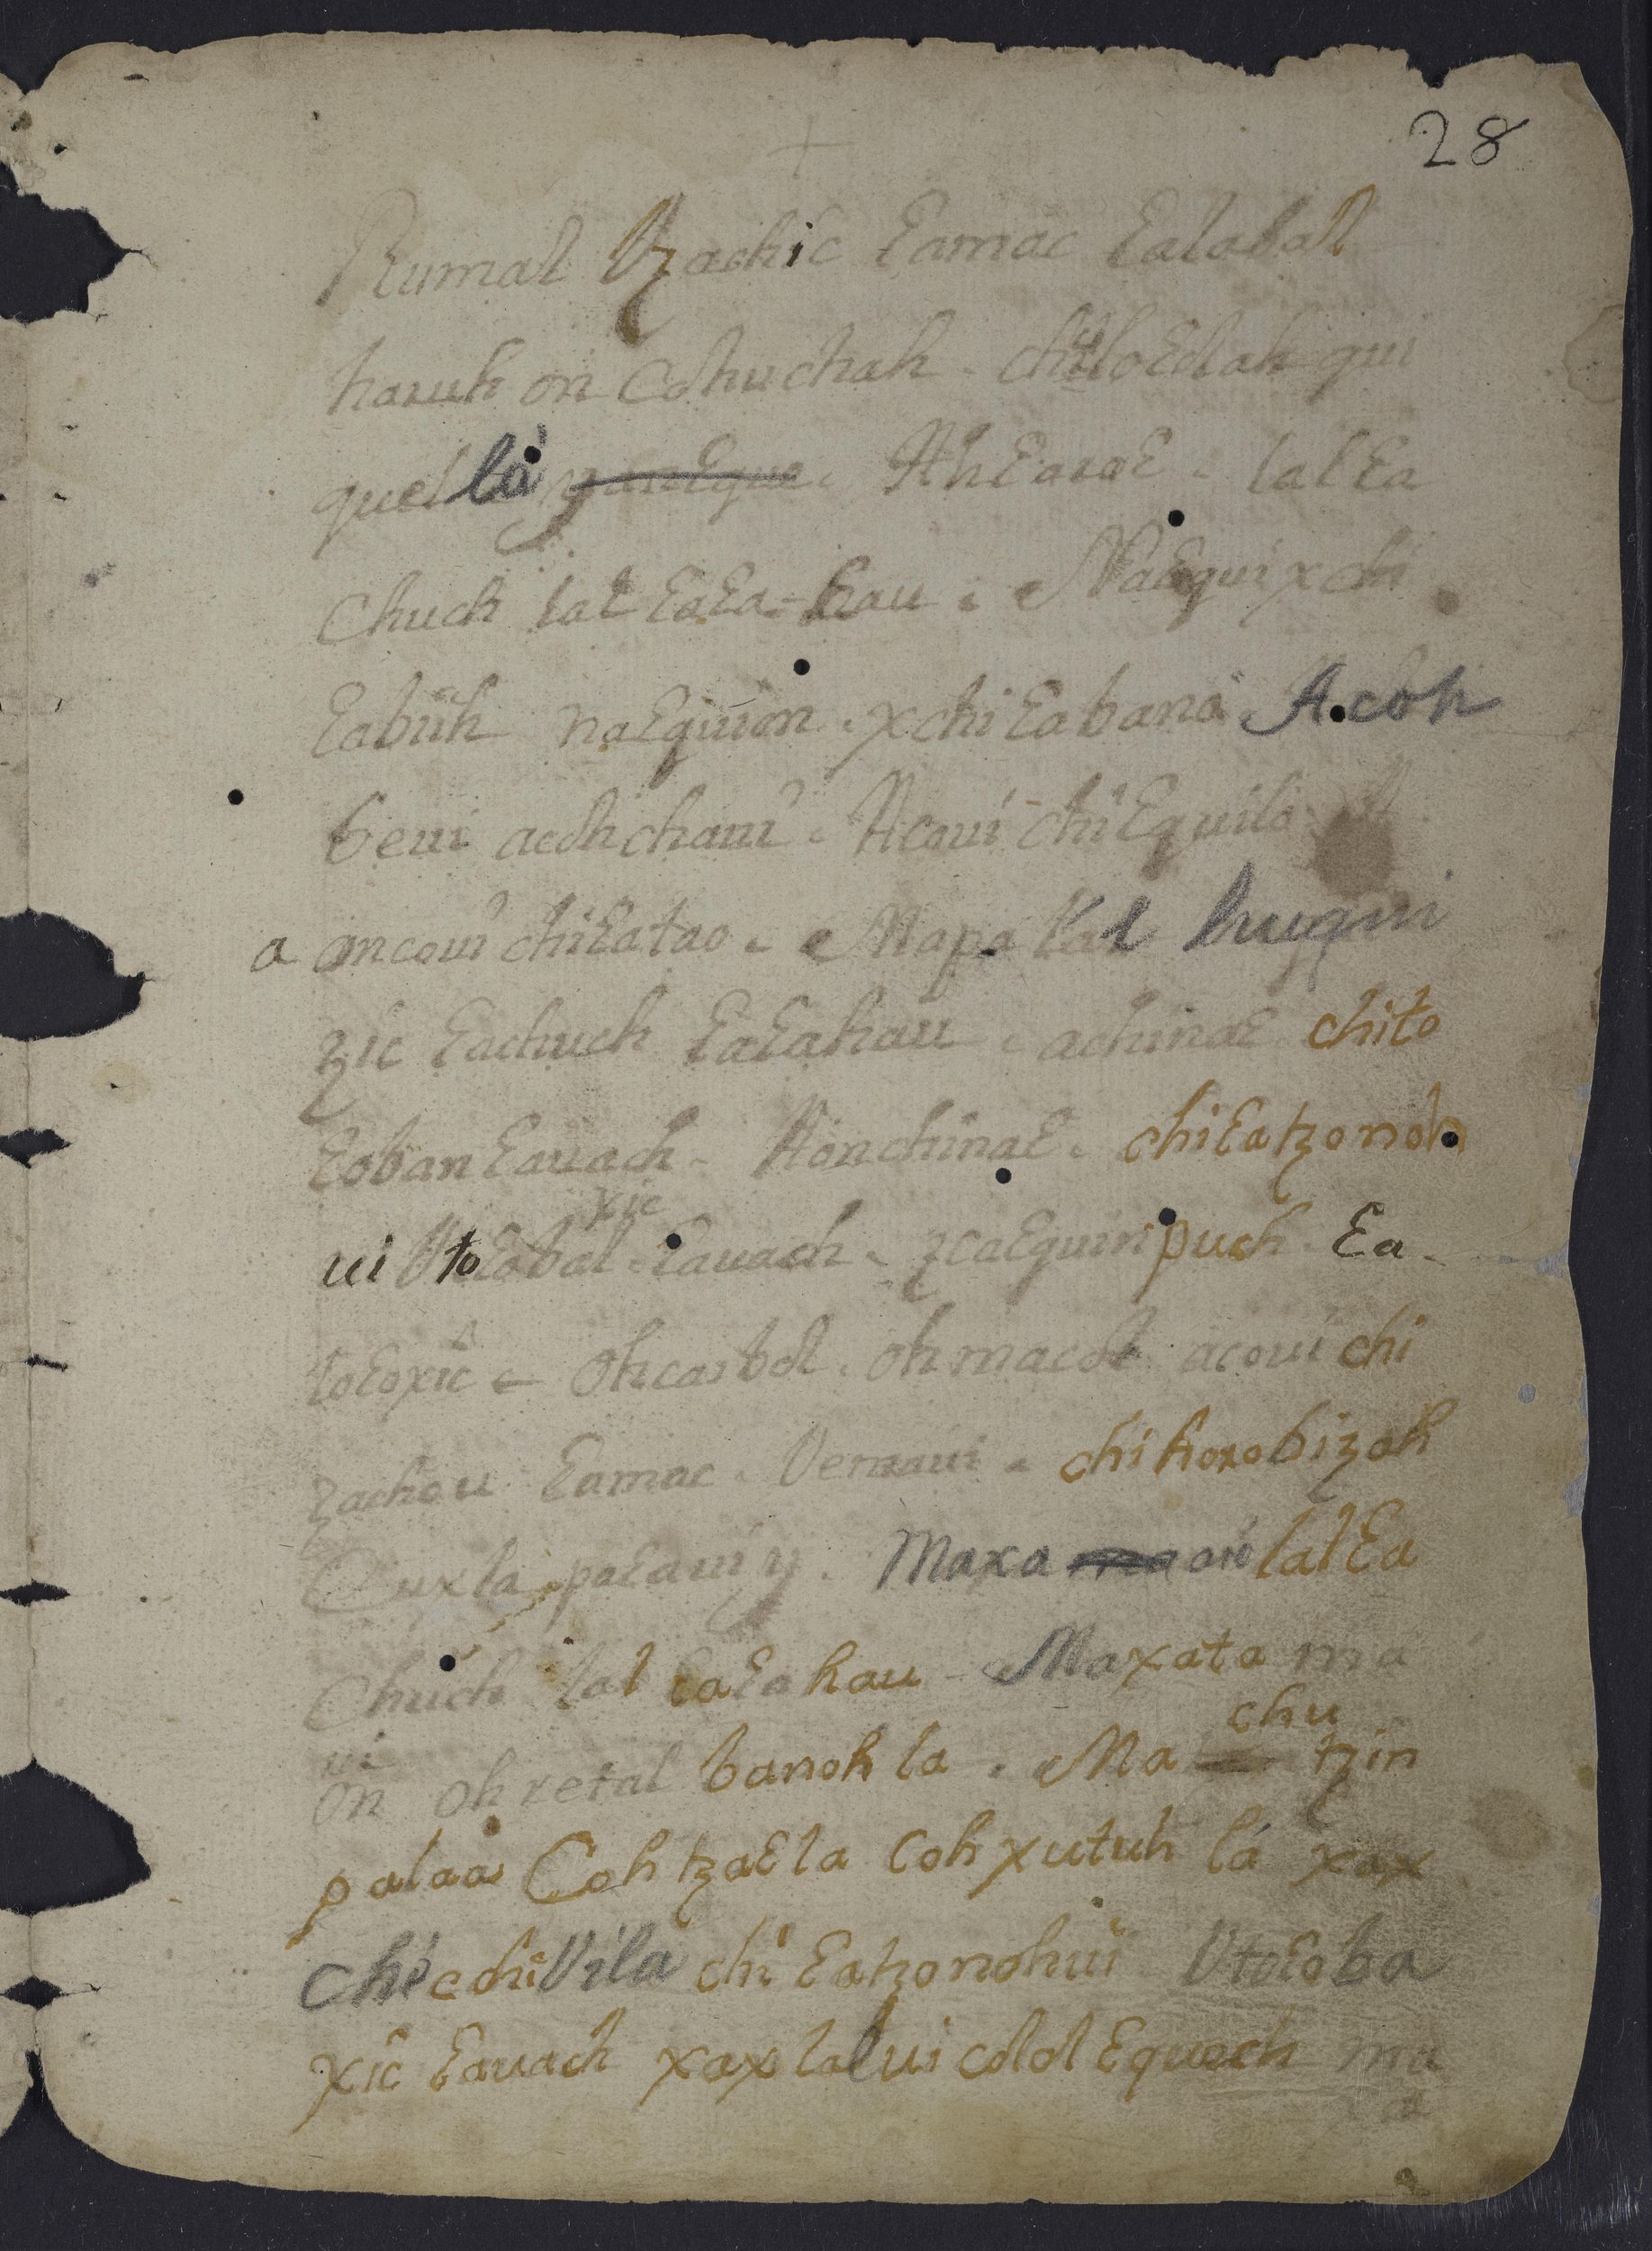 28
Rumal Vzachic Ɛamac Ɛalabal
haruh on Cohuchah - chiloƐolah qui
quel la AhƐaraƐ - lal Ɛa
Chuch lal ƐaƐa=hau . NaƐqui xchi
Ɛabiih naƐquion . xchi Ɛabano A.coh
beui acohchaui . Acaui chiƐquilo
a oncoui chiƐatao . Mapa lal huqui
zic Ɛachuch ƐaƐahau . achinaƐ chito
Ɛoban Ɛauach - AonchinaƐ . chiƐatzonoh
xic
ui VtoƐobal - Ɛauach . zcaƐquin puch . Ɛa -
loƐoxic - Ohcaibol . oh macol acoui chi
zachou Ɛamac . Vemaui - chi horobizoh
Cuxla paƐaui y . Maxa on lal Ɛa
Chuch lal ƐaƐahau - Maxata ma
ui chu
on oh retal banoh la . Ma tzin
palaa Coh tzaƐla Coh xutuh la xax
Che cohi Vila chi Ɛatzonohui VtoƐoba
xic Ɛauach xax lal ui colol Ɛquech ma